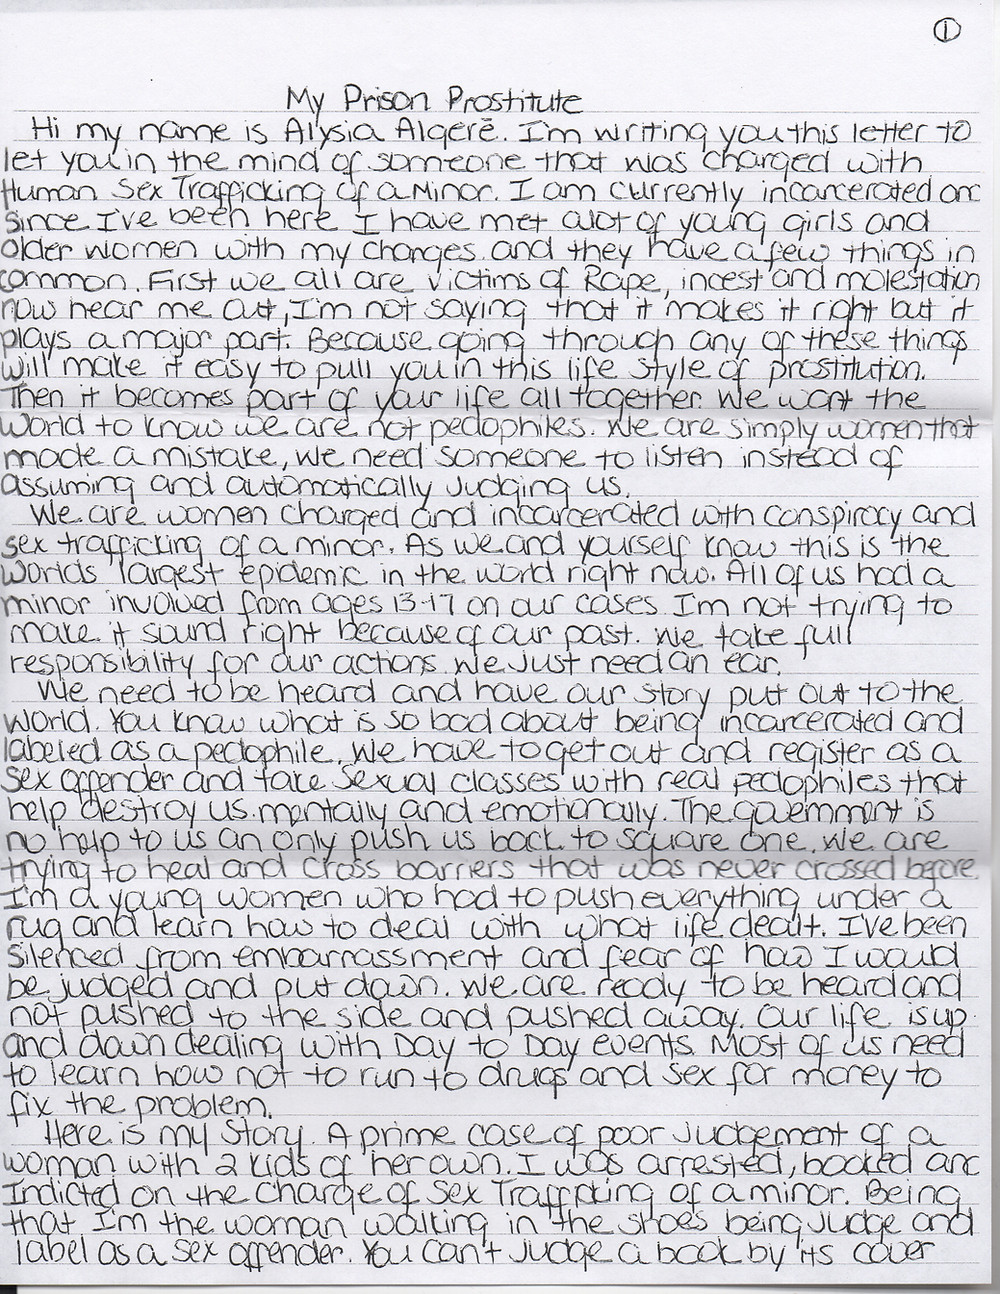 ①
My Prison Prostitute
Hi my name is Alysia Algerē. I'm writing you this letter to
let you in the mind of someone that was charged with
Human Sex Trafficking of a Minor. I am currently incarcerated and
since I've been here I have met alot of young girls and
older women with my charges and they have a few things in
common. First we all are victims of Rape, incest and molestation
now hear me out, I'm not saying that it makes it right but it
plays a major part. Because going through any of these things
will make it easy to pull you in this life style of prostitution.
Then it becomes part of your life all together. We want the
World to know we are not pedophiles. We are simply women that
made a mistake, we need someone to listen instead of
assuming and automatically Judging us.
We are women charged and incarcerated with conspiracy and
sex trafficking of a minor. As we and yourself know this is the
Worlds largest epidemic in the world right now. All of us had a
minor involved from ages 13-17 on our cases. I'm not trying to
make it sound right because of our past. We take full
responsibility for our actions. We Just need an ear.
We need to be heard and have our story put out to the
world. You know what is so bad about being incarcerated and
labeled as a pedophile. We have to get out and register as a
sex offender and take sexual classes with real pedophiles that
help destroy us mentally and emotionally. The government is
no help to us an only push us back to square one. We are
trying to heal and cross barriers that was never crossed before.
I'm a young women who had to push everything under a
rug and learn how to deal with what life dealt. I've been
silenced from embarrassment and fear of how I would
be judged and put down. We are ready to be heard and
not pushed to the side and pushed away. Our life is up
and down dealing with Day to Day events. Most of us need
to learn how not to run to drugs and sex for money to
fix the problem.
Here is my Story. A prime case of poor Judgement of a
woman with 2 kids of her own. I was arrested, booked and
Indicted on the charge of Sex Trafficking of a minor. Being
that I'm the woman walking in the shoes being Judge and
label as a sex offender. You can't Judge a book by its cover